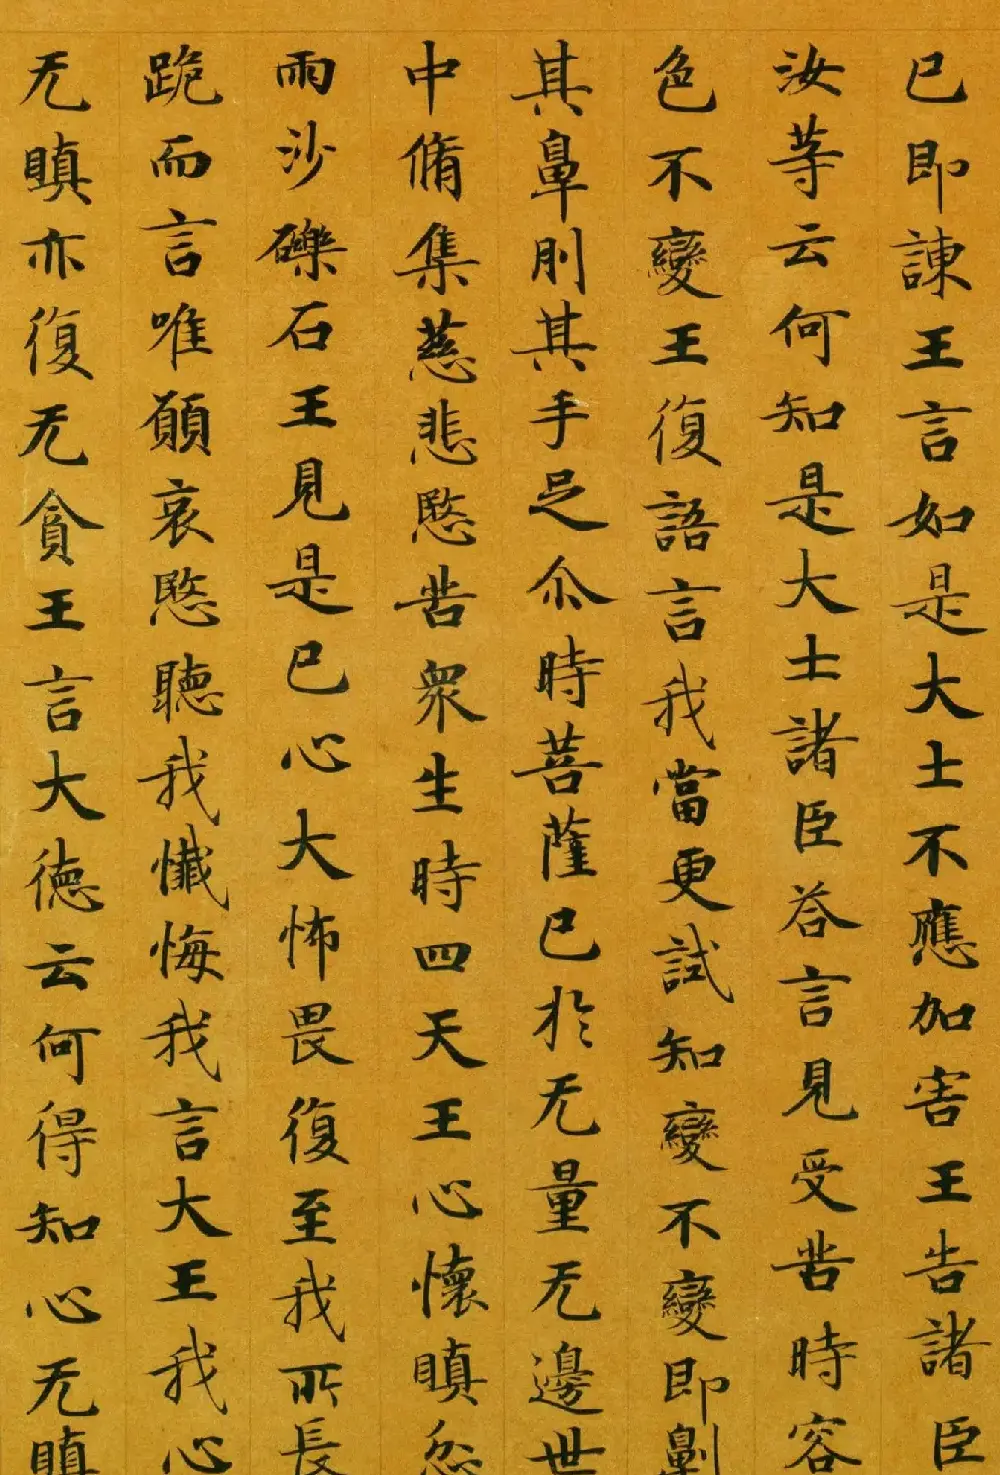 已即諫王言如是大士不應加害王告諸臣
汝等云何知是大士諸臣荅言見受苦時容
色不變王復語言我當更試知變不變即劓
其鼻刖其手足尒時菩薩已於无量无邊世
中脩集慈悲愍苦衆生時四天王心懷瞋忿
雨沙礫石王見是已心大怖畏復至我所長
跪而言唯願哀愍聽我懺悔我言大王我心
无瞋亦復无貪王言大德云何得知心无瞋